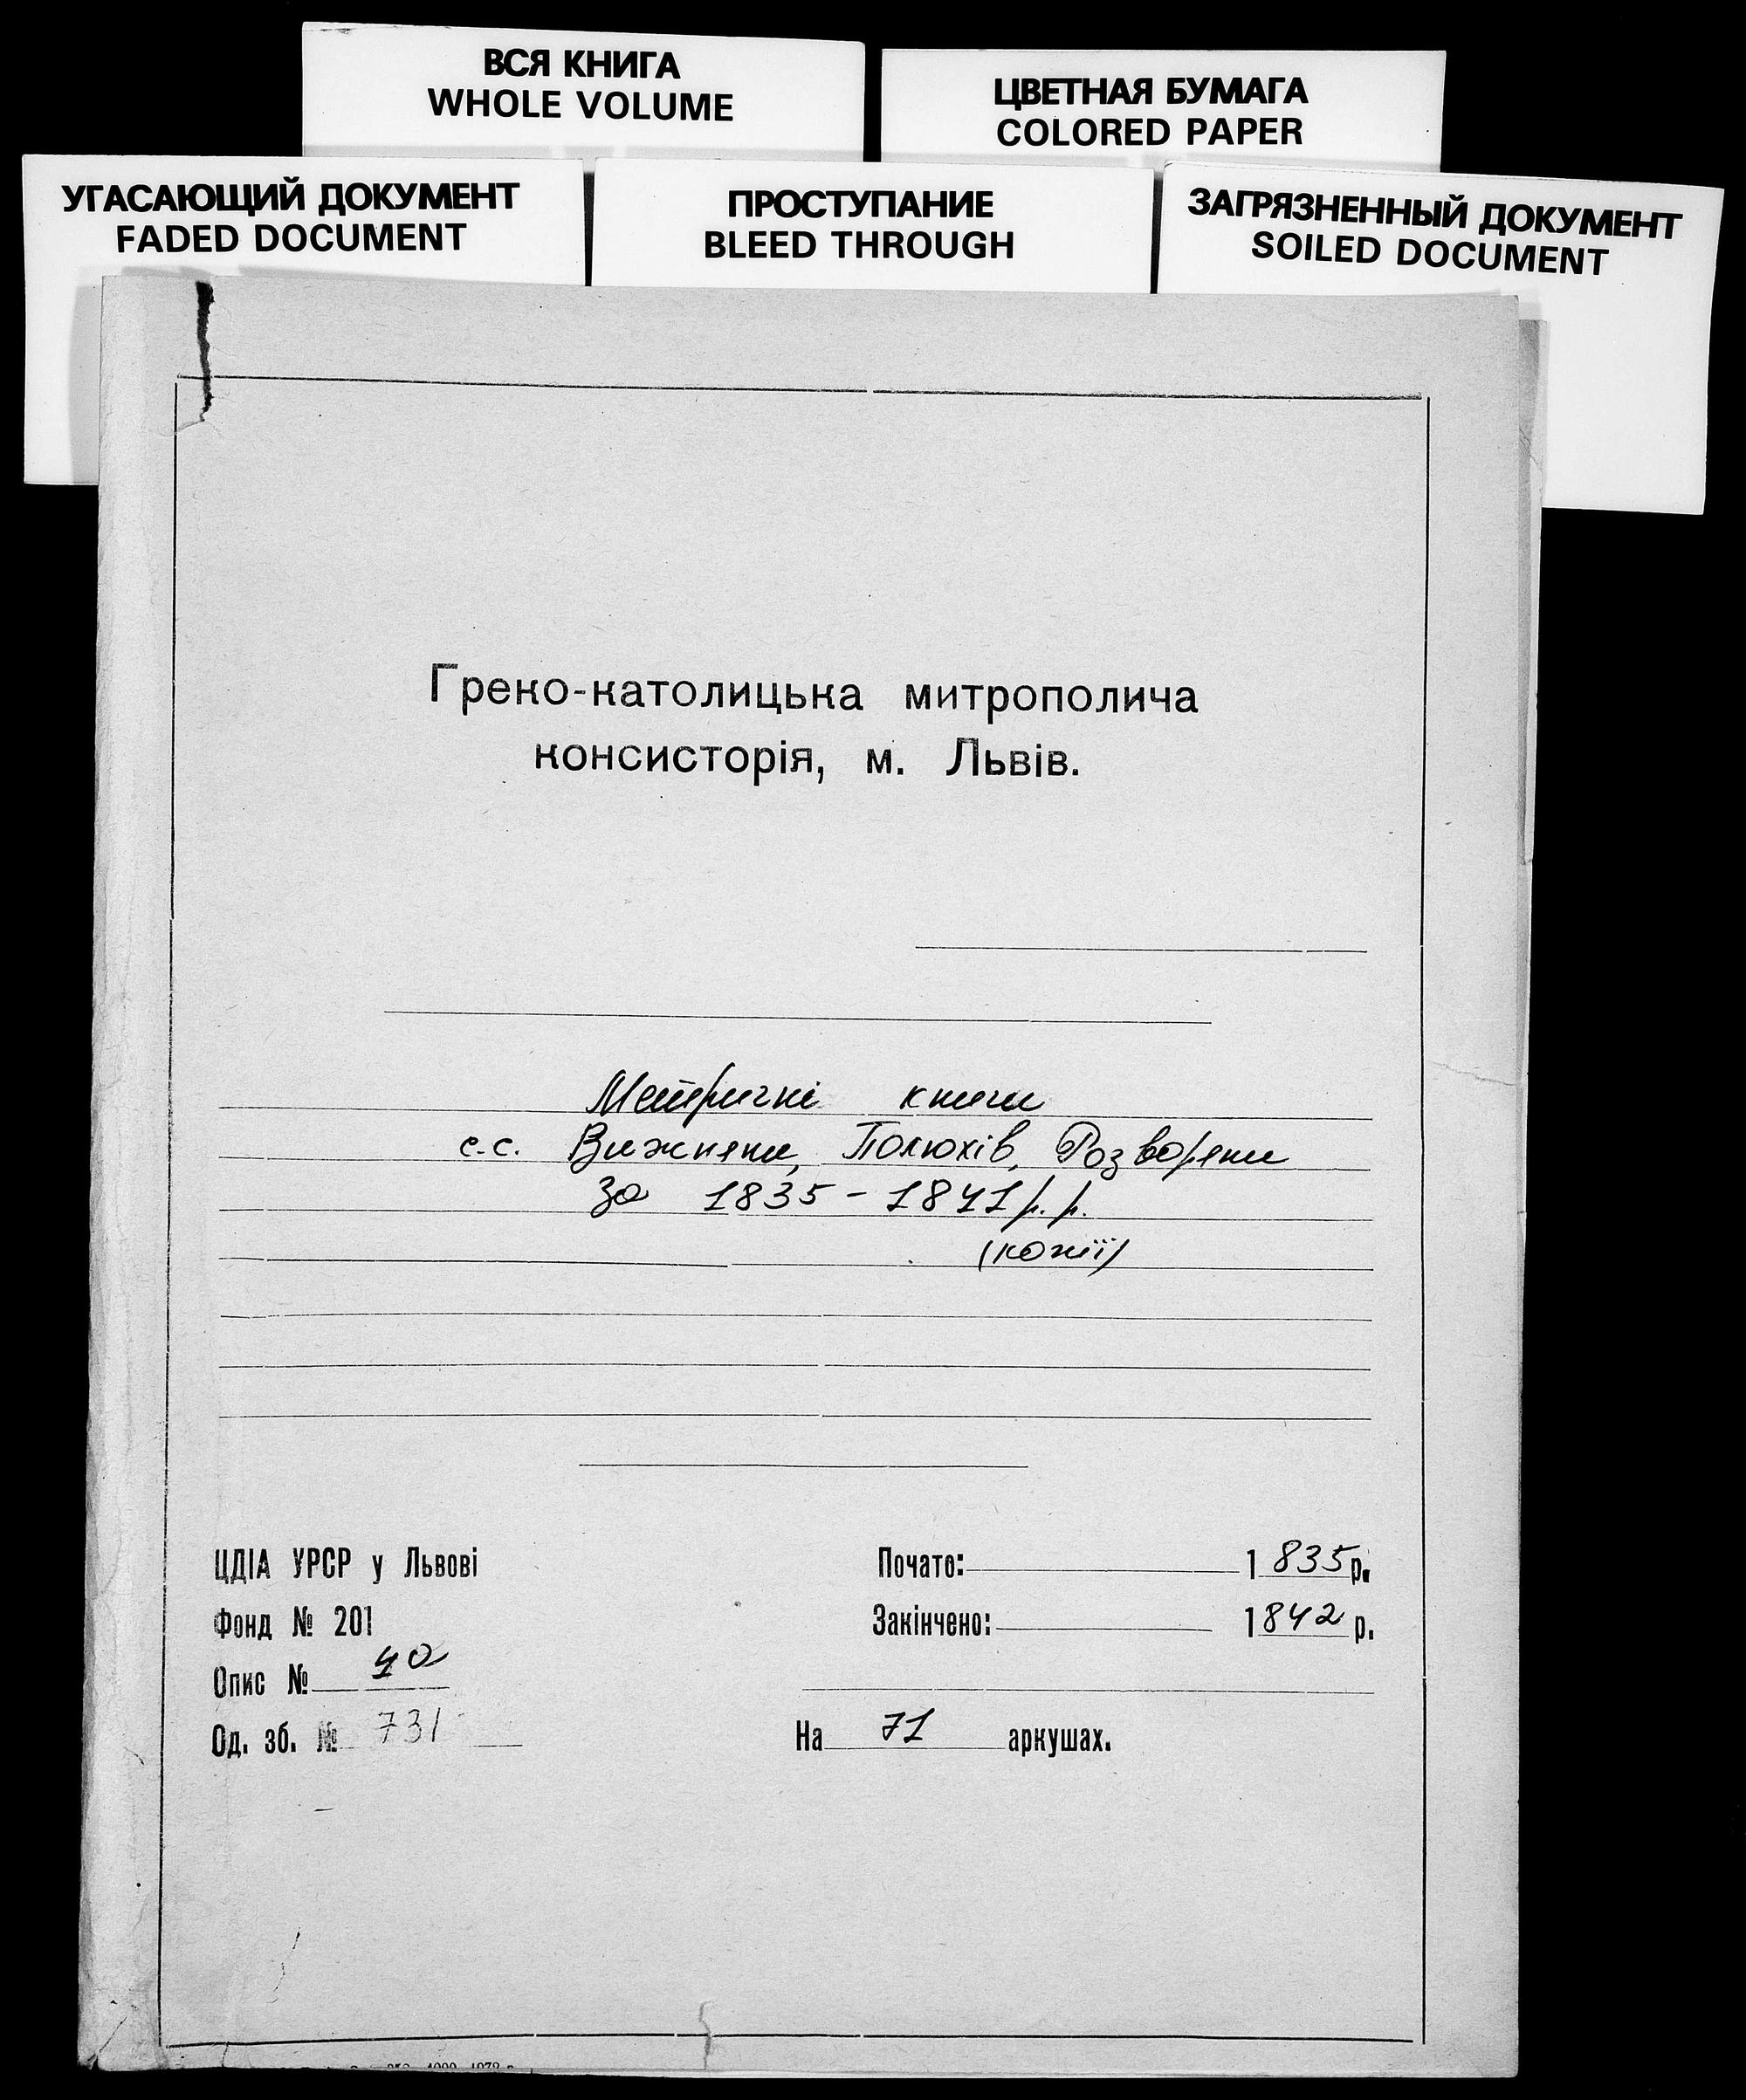 ВСЯ КНИГА
WHOLE VOLUME
ЦВЕТНАЯ БУМАГА
COLORED PAPER
УГАСАЮЩИЙ ДОКУМЕНТ
FADED DOCUMENT
ПРОСТУПАНИЕ
BLEED THROUGH
ЗАГРЯЗНЕННЫЙ ДОКУМЕНТ
SOILED DOCUMENT
Греко-католицька митрополича
консисторія, м. Львів.
Метричні книги
с.с. Вижняни, Полюхів, Розворяни
за 1835-1841 р.р.
(копії)
ЦДІА УРСР у Львові
Почато: 1835 р.
Фонд № 201
Закінчено: 1842 р.
Опис № 40
Од. зб. № 731
На 71 аркушах.